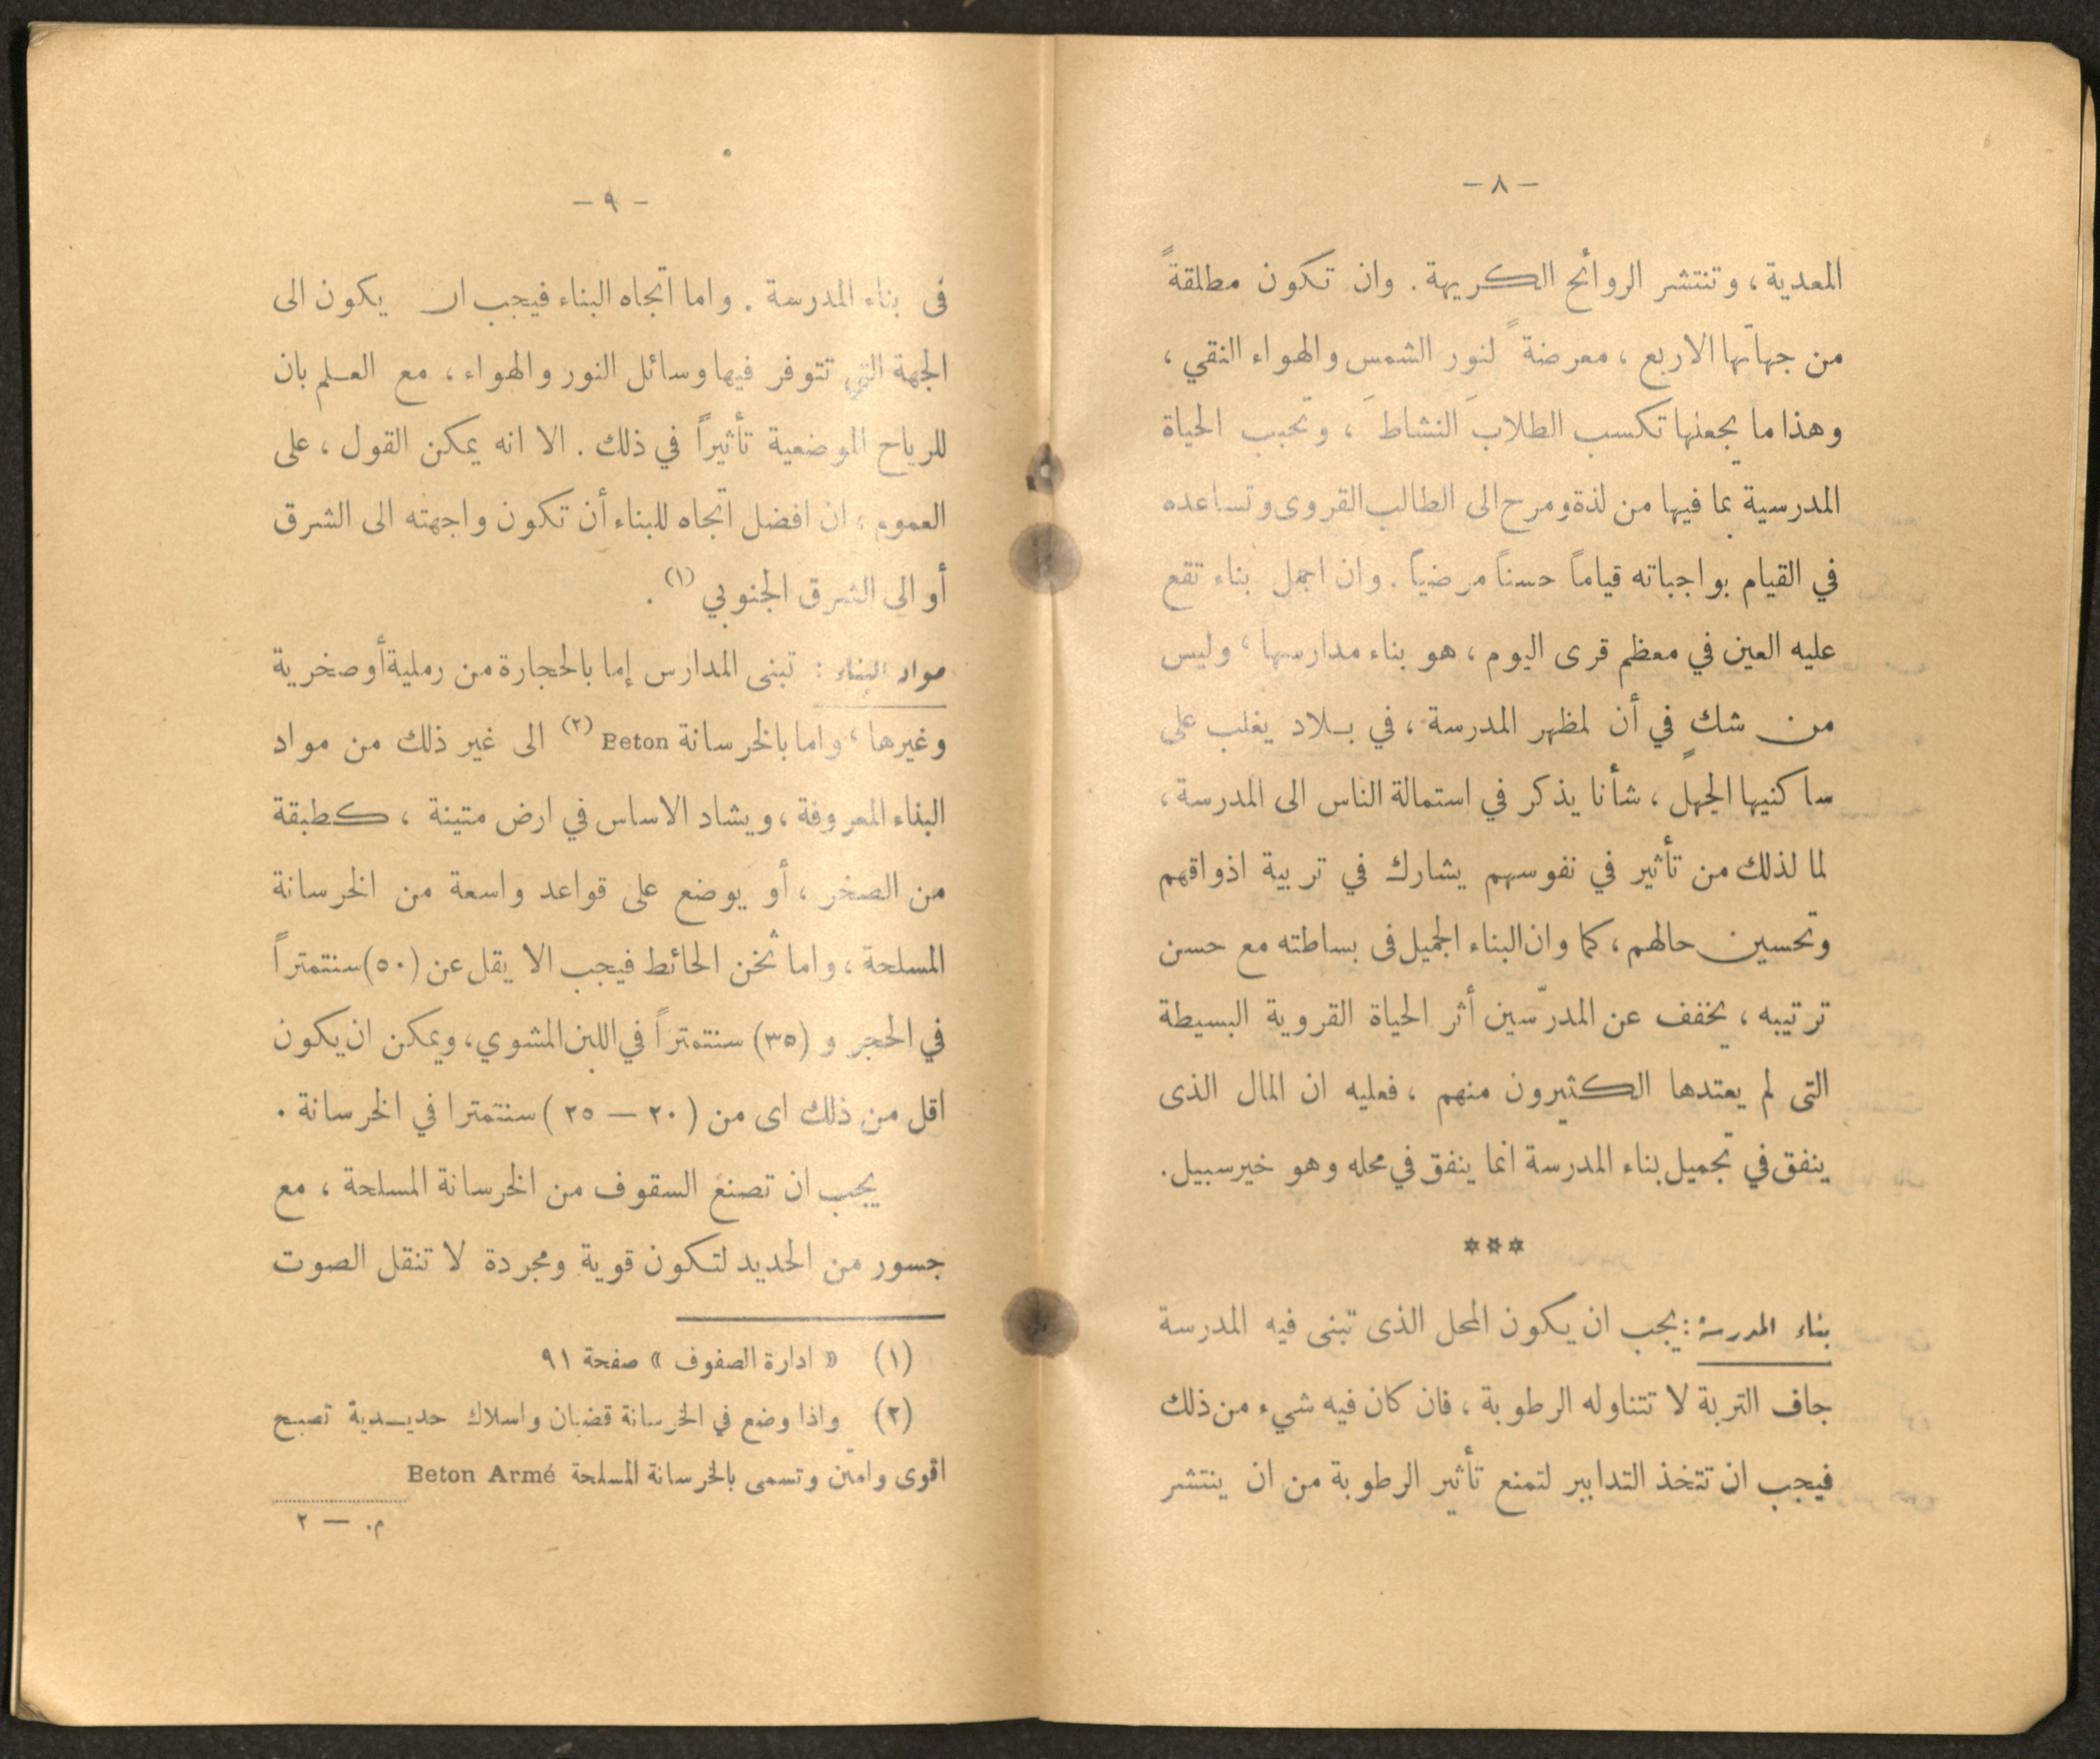 — ٨ —
المعدية ، وتنتشر الروائح الكريهة . وان تكون مطلقةً
من جهاتها الاربع ، معرضةً لنور الشمس والهواء النقي ،
وهذا ما يجعلها تكسب الطلابَ النشاطَ ، وتحبب الحياة
المدرسية بما فيها من لذة ومرح الى الطالب القروى وتساعده
في القيام بواجباته قياماً حسناً مرضياً . وان اجمل بناء تقع
عليه العين في معظم قرى اليوم ، هو بناء مدارسها ، وليس
من شكٍ في أن لمظهر المدرسة ، في بلاد يغلب على
ساكنيها الجهل ، شأنا يذكر في استمالة الناس الى المدرسة ،
لما لذلك من تأثير في نفوسهم يشارك في تربية اذواقهم
وتحسين حالهم ، كما وان البناء الجميل فى بساطته مع حسن
ترتيبه ، يخفف عن المدرّسين أثر الحياة القروية البسيطة
التى لم يعتدها الكثيرون منهم ، فعليه ان المال الذى
ينفق في تجميل بناء المدرسة انما ينفق في محله وهو خير سبيل .
***
بناء المدرسة : يجب ان يكون المحل الذى تبنى فيه المدرسة
جاف التربة لا تتناوله الرطوبة ، فان كان فيه شيء من ذلك
فيجب ان تتخذ التدابير لتمنع تأثير الرطوبة من ان ينتشر
— ٩ —
فى بناء المدرسة . واما اتجاه البناء فيجب ان يكون الى
الجهة التي تتوفر فيها وسائل النور والهواء ، مع العلم بان
للرياح الموضعية تأثيراً في ذلك . الا انه يمكن القول ، على
العموم ، ان افضل اتجاه للبناء أن تكون واجهته الى الشرق
أو الى الشرق الجنوبي (١) .
مواد البناء : تبنى المدارس إما بالحجارة من رملية أو صخرية
وغيرها ، واما بالخرسانة Beton (٢) الى غير ذلك من مواد
البناء المعروفة ، ويشاد الاساس في ارض متينة ، كطبقة
من الصخر ، أو يوضع على قواعد واسعة من الخرسانة
المسلحة ، واما ثخن الحائط فيجب الا يقل عن (٥٠) سنتمتراً
في الحجر و (٣٥) سنتمتراً في اللبن المشوي ، ويمكن ان يكون
اقل من ذلك اى من ( ٢٠ — ٢٥ ) سنتمترا في الخرسانة .
يجب ان تصنع السقوف من الخرسانة المسلحة ، مع
جسور من الحديد لتكون قوية ومجردة لا تنقل الصوت
(١) « ادارة الصفوف » صفحة ٩١
(٢) واذا وضع في الخرسانة قضبان واسلاك حديدية تصبح
اقوى وامتن وتسمى بالخرسانة المسلحة Beton Armé
م. — ٢